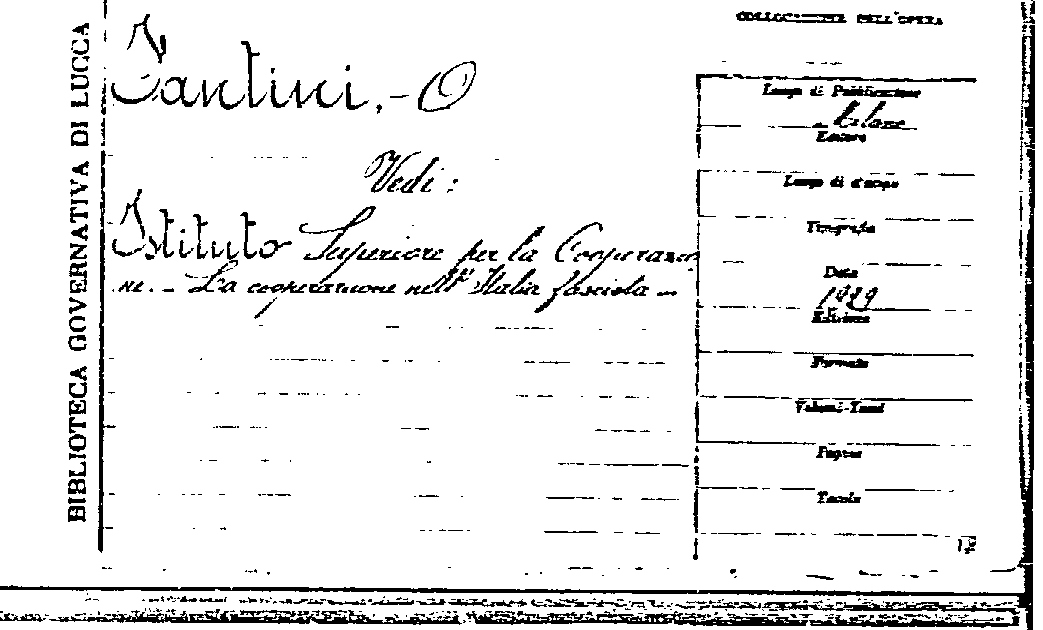 BIBLIOTECA GOVERNATIVA DI LUCCA
Fantini, - O
Vedi :
Istituto Superiore per la Cooperazio
ne. - La cooperazione nell'Italia fascista -
COLLOCAZIONE DELL'OPERA
Luogo di Pubblicazione
Milano
Editore
Luogo di stampa
Tipografia
Data
1929
Edizione
Formato
Volumi-Tomi
Pagine
Tavole